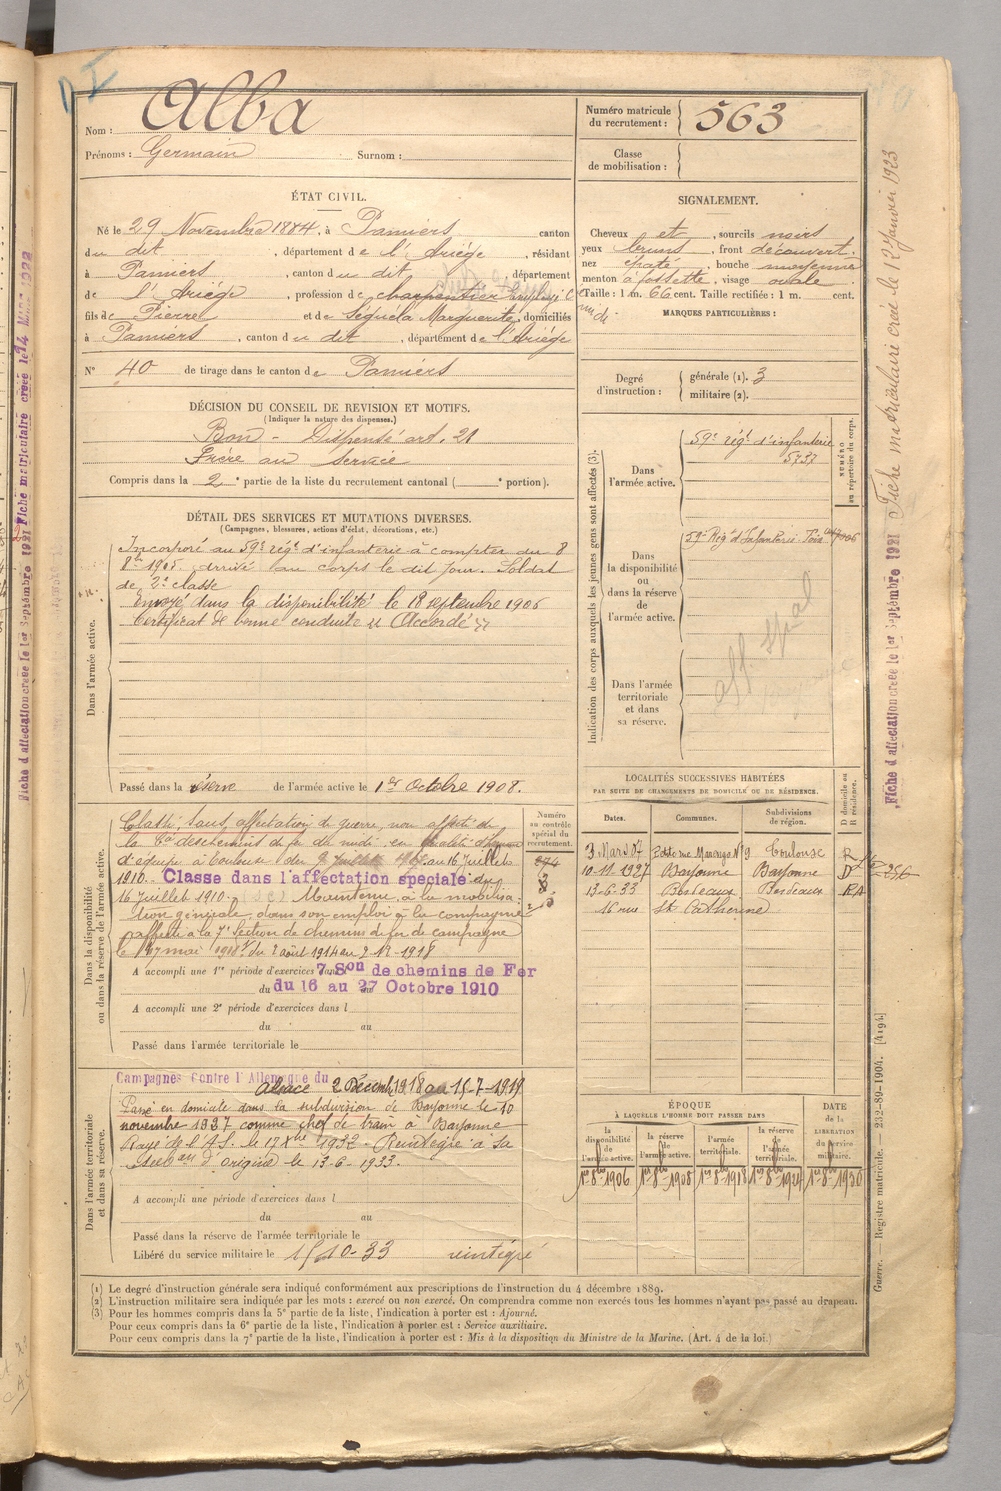 D I
Nom : Alba
Prénoms : Germain Surnom :
Numéro matricule du recrutement : 563
Classe de mobilisation :
ÉTAT CIVIL.
Né le 29 Novembre 1884, à Pamiers canton
du dit, département de l'Ariége, résidant
à Pamiers, canton du dit, département
de l'Ariége, profession de charpentier employé
fils de Pierre et de Séguéla Marguerite, domiciliés
à Pamiers, canton du dit, département de l'Ariége
N° 40 de tirage dans le canton de Pamiers
SIGNALEMENT.
Cheveux et, sourcils noirs
yeux bruns, front découvert
nez épaté, bouche moyenne
menton à fossette, visage ovale
Taille : 1 m. 66 cent. Taille rectifiée : 1 m. cent.
MARQUES PARTICULIÈRES :
Degré d'instruction : générale (1). 3
militaire (2).
DÉCISION DU CONSEIL DE REVISION ET MOTIFS.
(Indiquer la nature des dispenses.)
Bon - Dispensé art. 21
Frère au service
Compris dans la 2e partie de la liste du recrutement cantonal ( e portion).
DÉTAIL DES SERVICES ET MUTATIONS DIVERSES.
(Campagnes, blessures, actions d'éclat, décorations, etc.)
Dans l'armée active.
Incorporé au 59e régt d'infanterie à compter du 8
8bre 1905. arrivé au corps le dit jour. Soldat
de 2e classe
Envoyé dans la disponibilité le 18 septembre 1906
Certificat de bonne conduite "Accordé"
Passé dans la réserve de l'armée active le 1er Octobre 1908.
Indication des corps auxquels les jeunes gens sont affectés (3).
NUMÉRO au répertoire du corps.
Dans l'armée active.
59e régt d'infanterie
5737
Dans la disponibilité ou dans la réserve de l'armée active.
59e Régt d'Infanterie Foix
Dans l'armée territoriale et dans sa réserve.
aff. spal
Dans la disponibilité ou dans la réserve de l'armée active.
Numéro au contrôle spécial du recrutement.
Classé, sans affectation de guerre, non affecté de
la Cie des chemins de fer du midi, en qualité d'homme
d'équipe à Toulouse du 9 Juillet au 16 Juillet
1910. Classe dans l'affectation speciale du
16 Juillet 1910. Maintenu, à la mobilisa-
tion générale, dans son emploi à la compagnie
affecté à la 7e Section de chemins de fer de campagne
le 17 mai 1918. du 2 août 1914 au 2-12-1918
A accompli une 1re période d'exercices dans 7 Son de chemins de Fer
du 16 au 27 Octobre 1910
A accompli une 2e période d'exercices dans l
du au
Passé dans l'armée territoriale le
LOCALITÉS SUCCESSIVES HABITÉES
PAR SUITE DE CHANGEMENTS DE DOMICILE OU DE RÉSIDENCE.
Dates. Communes. Subdivisions de région. D domicile ou R résidence.
3 Mars 07 Petite rue Marengo N° 9 Toulouse R
10-11 1927 Bayonne Bayonne D
13-6-33 Bordeaux Bordeaux RA
16 rue St Catherine
Dans l'armée territoriale et dans sa réserve.
Campagnes Contre l'Allemagne du
Alsace 2 Décemb 1918 au 15-7-1919
Passé en domicile dans la subdivision de Bayonne le 10
novembre 1927 comme chef de train à Bayonne
Rayé de l'A.S. le 17 Xbre 1932 - Réintégré à sa
subdon d'origine le 13-6-1933.
A accompli une période d'exercices dans l
du au
Passé dans la réserve de l'armée territoriale le
Libéré du service militaire le 15-10-33 réintégré
ÉPOQUE
À LAQUELLE L'HOMME DOIT PASSER DANS
la disponibilité de l'armée active. la réserve de l'armée active. l'armée territoriale. la réserve de l'armée territoriale. DATE de la LIBÉRATION du service militaire.
1er 8bre 1906 1er 8bre 1908 1er 8bre 1918 1er 8bre 1924 1er 8bre 1930
(1) Le degré d'instruction générale sera indiqué conformément aux prescriptions de l'instruction du 4 décembre 1889.
(2) L'instruction militaire sera indiquée par les mots : exercé ou non exercé. On comprendra comme non exercés tous les hommes n'ayant pas passé au drapeau.
(3) Pour les hommes compris dans la 5e partie de la liste, l'indication à porter est : Ajourné.
Pour ceux compris dans la 6e partie de la liste, l'indication à porter est : Service auxiliaire.
Pour ceux compris dans la 7e partie de la liste, l'indication à porter est : Mis à la disposition du Ministre de la Marine. (Art. 4 de la loi.)
Guerre. — Registre matricule. — 232-89-1904. [4194]
Fiche d'affectation creee le 1er Septembre 1921 Fiche matriculaire créée le 12 Janvier 1923
Fiche d affectation creee le 1er Septembre 1921 Fiche matriculaire créée le 14 Mars 1922